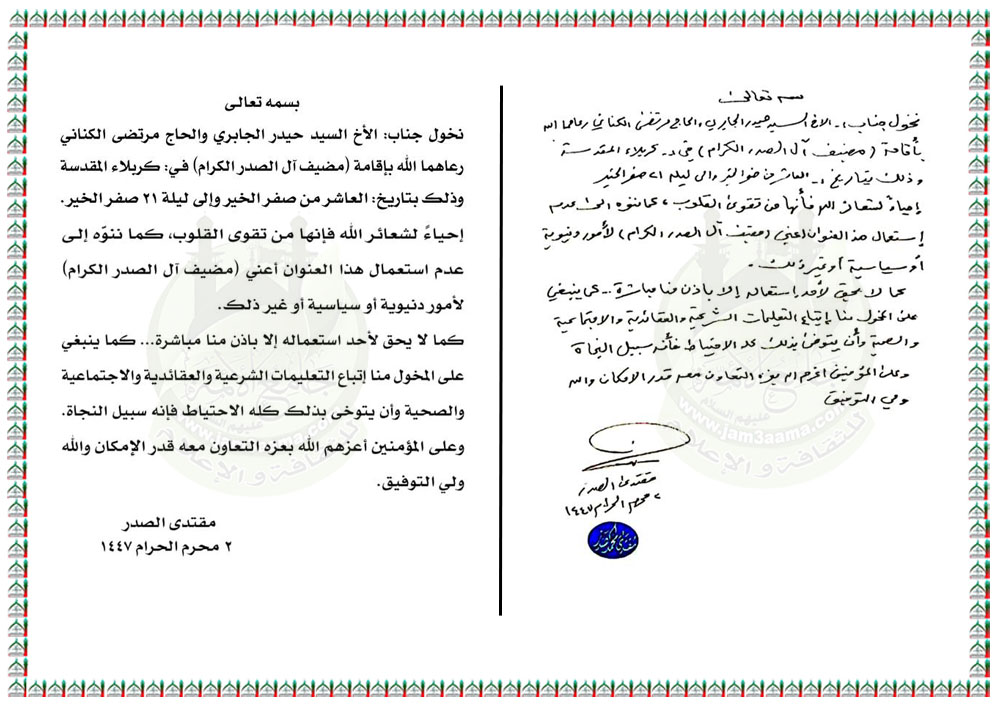 بسمه تعالى
نخول جناب :ـ الاخ السيد حيدر الجابري والحاج مرتضى الكناني رعاهما الله
بأقامة (مضيف آل الصدر الكرام) في :ـ كربلاء المقدسة
وذلك بتاريخ :ـ العاشر من صفر الخير والى ليلة ٢١ صفر الخير
إحياءً لشعائر الله فأنها من تقوى القلوب، كما ننوه الى عدم
إستعمال هذا العنوان اعني (مضيف آل الصدر الكرام) لأمور دنيوية
أو سياسية أو غير ذلك .
كما لا يحق لأحد إستعماله إلا بأذن منا مباشرة... كما ينبغي
على المخول منا إتباع التعليمات الشرعية والعقائدية والاجتماعية
والصحية وأن يتوخى بذلك كله الاحتياط فأنه سبيل النجاة
وعلى المؤمنين اعزهم الله بعزه التعاون معه قدر الامكان والله
ولي التوفيق
مقتدى الصدر
٢ محرم الحرام ١٤٤٧
بسمه تعالى
نخول جناب: الأخ السيد حيدر الجابري والحاج مرتضى الكناني
رعاهما الله بإقامة (مضيف آل الصدر الكرام) في: كربلاء المقدسة
وذلك بتاريخ: العاشر من صفر الخير وإلى ليلة ٢١ صفر الخير.
إحياءً لشعائر الله فإنها من تقوى القلوب، كما ننوّه إلى
عدم استعمال هذا العنوان أعني (مضيف آل الصدر الكرام)
لأمور دنيوية أو سياسية أو غير ذلك.
كما لا يحق لأحد استعماله إلا باذن منا مباشرة... كما ينبغي
على المخول منا إتباع التعليمات الشرعية والعقائدية والاجتماعية
والصحية وأن يتوخى بذلك كله الاحتياط فإنه سبيل النجاة.
وعلى المؤمنين أعزهم الله بعزه التعاون معه قدر الإمكان والله
ولي التوفيق.
مقتدى الصدر
٢ محرم الحرام ١٤٤٧
www.jam3aama.com
للثقافة والإعلام